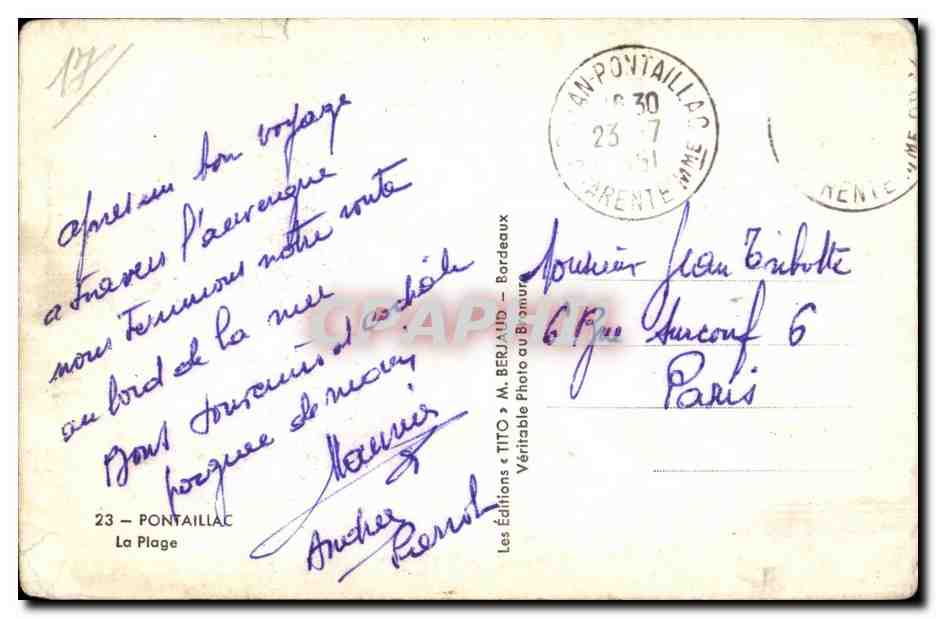 17
après un bon voyage
a travers l'auvergne
nous terminons notre route
au bord de la mer
Bons souvenirs et cordiale
poignee de main
Maurice
Andrée
Pierrot
23 – PONTAILLAC
La Plage
Les Éditions « TITO » M. BERJAUD – Bordeaux
Véritable Photo au Bromure
AN-PONTAILLAC
30
23 7
51
ARENTE MME
RENTE MME
Monsieur Jean Tribotte
6 Rue Surcouf 6
Paris
CPAPHIL